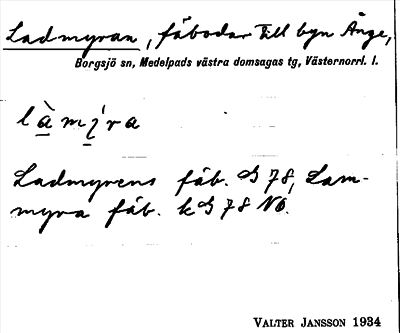 Ladmyran, fäbodar till byn Ånge,
Borgsjö sn, Medelpads västra domsagas tg, Västernorrl. l.
làmýra
Ladmyrens fäb. G 78, Lam-
myra fäb. k G 78 NO.
VALTER JANSSON 1934